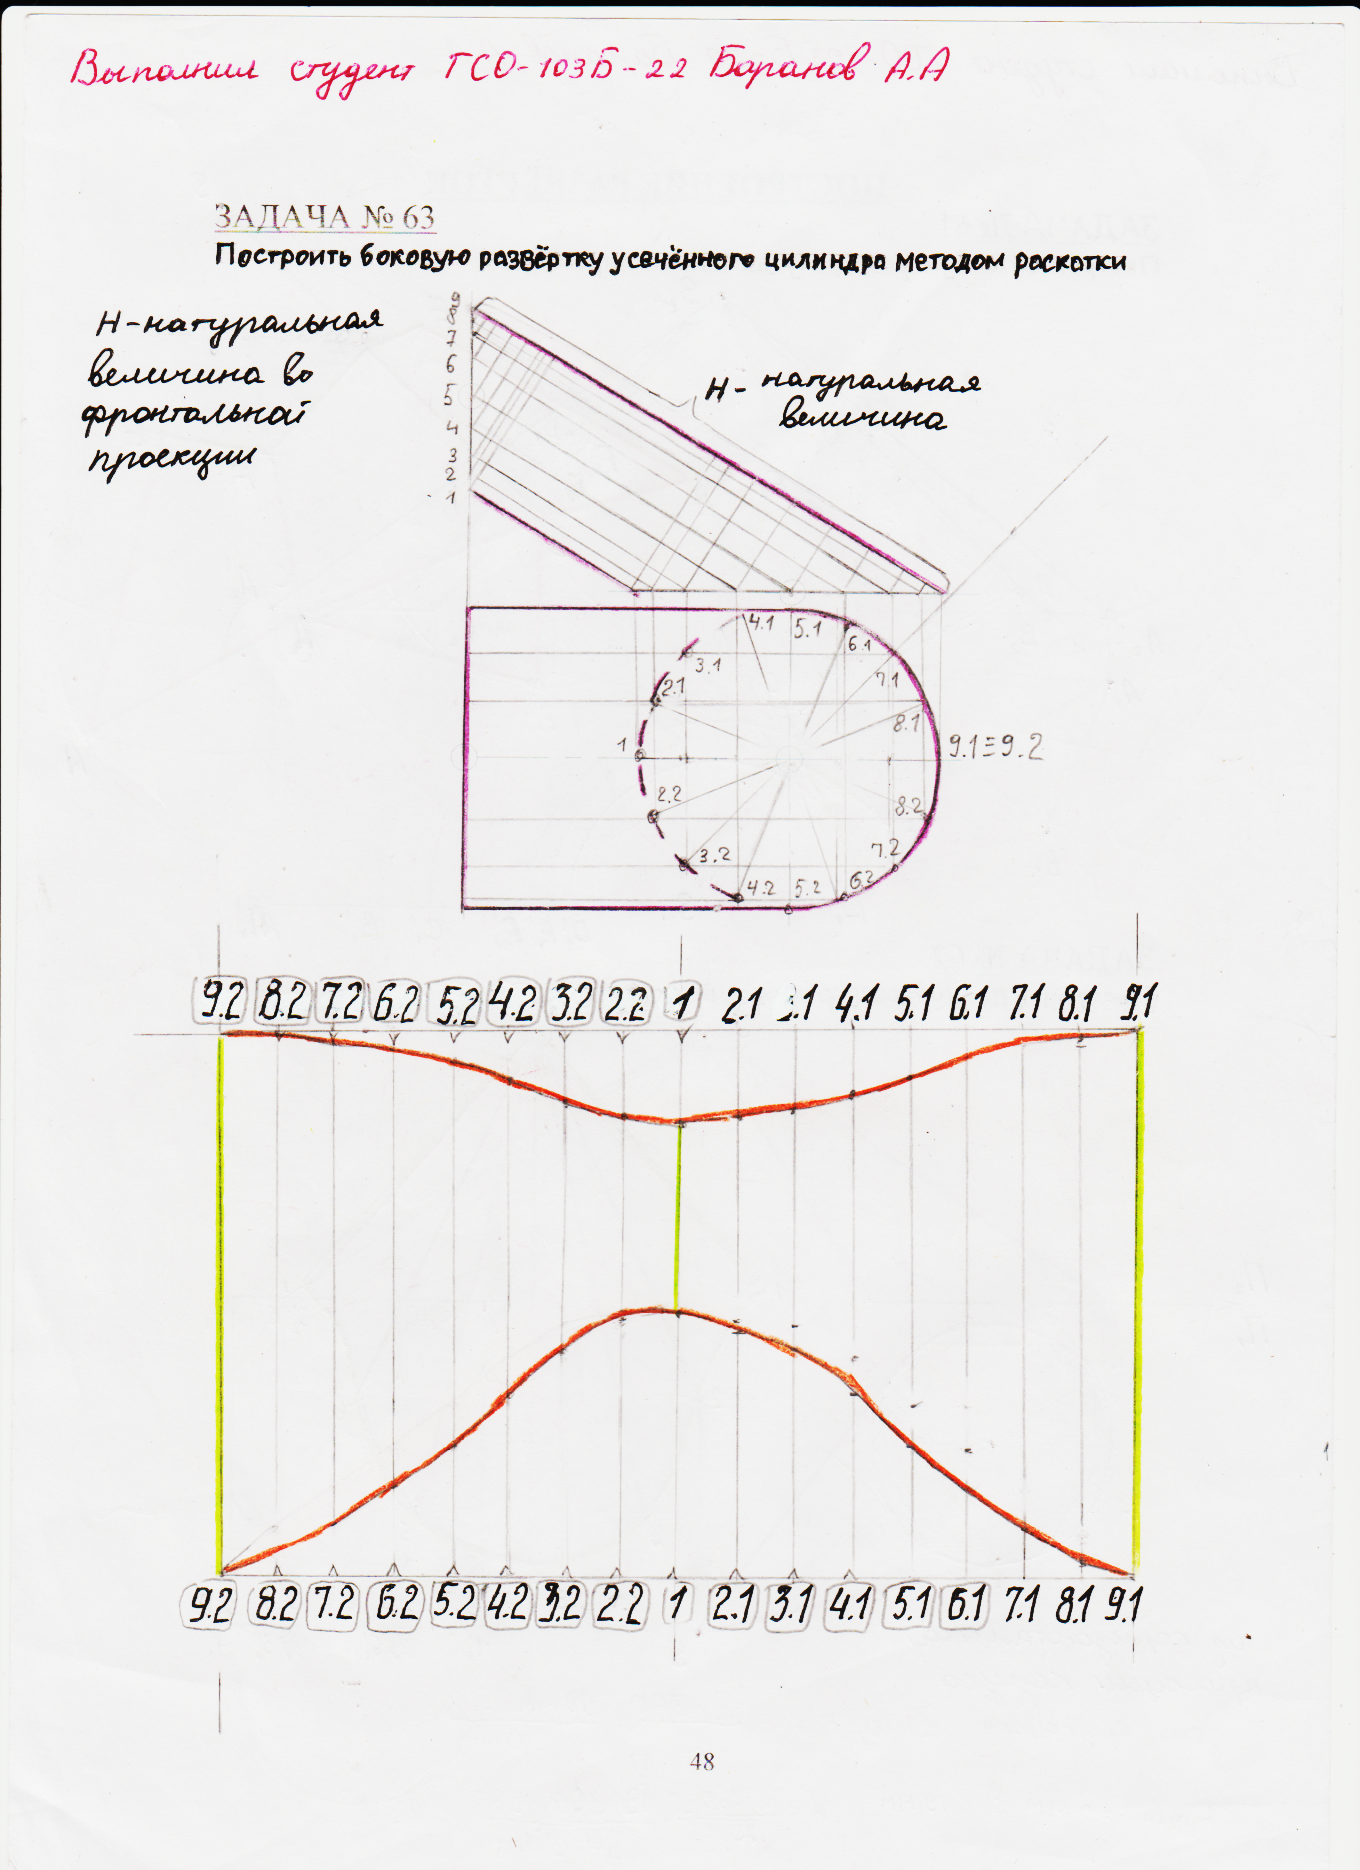 Выполнил студент ГСО-103Б-22 Баранов А.А
ЗАДАЧА № 63
Построить боковую развёртку усечённого цилиндра методом раскатки
Н-натуральная
величина во
фронтальной
проекции
9
8
7
6
5
4
3
2
1
Н- натуральная
величина
4.1 5.1 6.1
3.1 7.1
2.1 8.1
1 9.1≡9.2
2.2 8.2
3.2 7.2
4.2 5.2 6.2
9.2 8.2 7.2 6.2 5.2 4.2 3.2 2.2 1 2.1 3.1 4.1 5.1 6.1 7.1 8.1 9.1
9.2 8.2 7.2 6.2 5.2 4.2 3.2 2.2 1 2.1 3.1 4.1 5.1 6.1 7.1 8.1 9.1
48